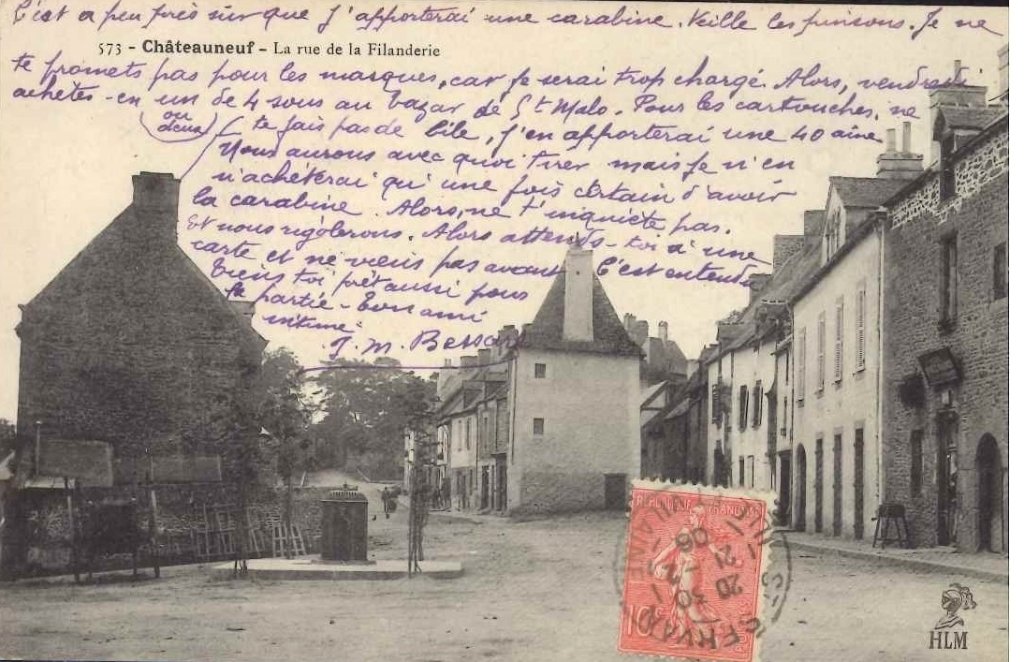 C'est à peu près sûr que j'apporterai une carabine. Veille les pinsons. Je ne
573 - Châteauneuf - La rue de la Filanderie
te promets pas pour les masques, car je serai trop chargé. Alors, vendredi
achètes-en un de 4 sous au bazar de St Malo. Pour les cartouches, ne
(ou deux)
te fais pas de bile, j'en apporterai une 40aine.
Nous aurons avec quoi tirer mais je n'en
n'achèterai qu'une fois certain d'avoir
la carabine. Alors, ne t'inquiète pas.
Et nous rigolerons. Alors attends-toi à une
carte et ne viens pas avant. C'est entendu
Tiens toi prêt aussi pour
la partie - Ton ami
intime
J. M. Bessard
REPUBLIQUE FRANÇAISE
10c
HLM